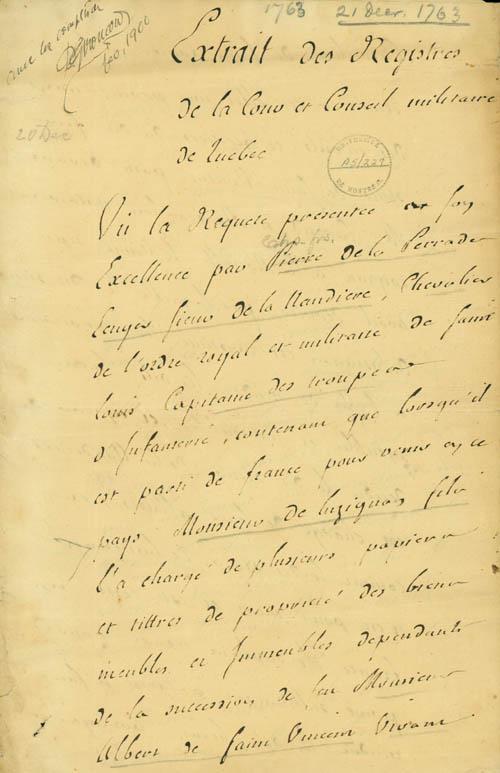 1763 21 Decr. 1763
fev. 1900
Extrait des Registres
de la Cour et Conseil militaire
20 Dec
de Quebec
A5/227
DE MONTREAL
Vû la Requete presentée a son
Excellence par Pierre de la Perrade
Ecuyer sieur de la Naudiere, Chevalier
de l'ordre royal et militaire de saint
louis Capitaine des troupes
d'Infanterie, contenant que lorsqu'il
est parti de france pour venir en ce
pays Monsieur de luzignas fils
l'a chargé de plusieurs papiers
et tittres de proprieté des biens
meubles et Immeubles dependants
de la succession de feu Monsieur
Albert de Saint Vincent Vivant